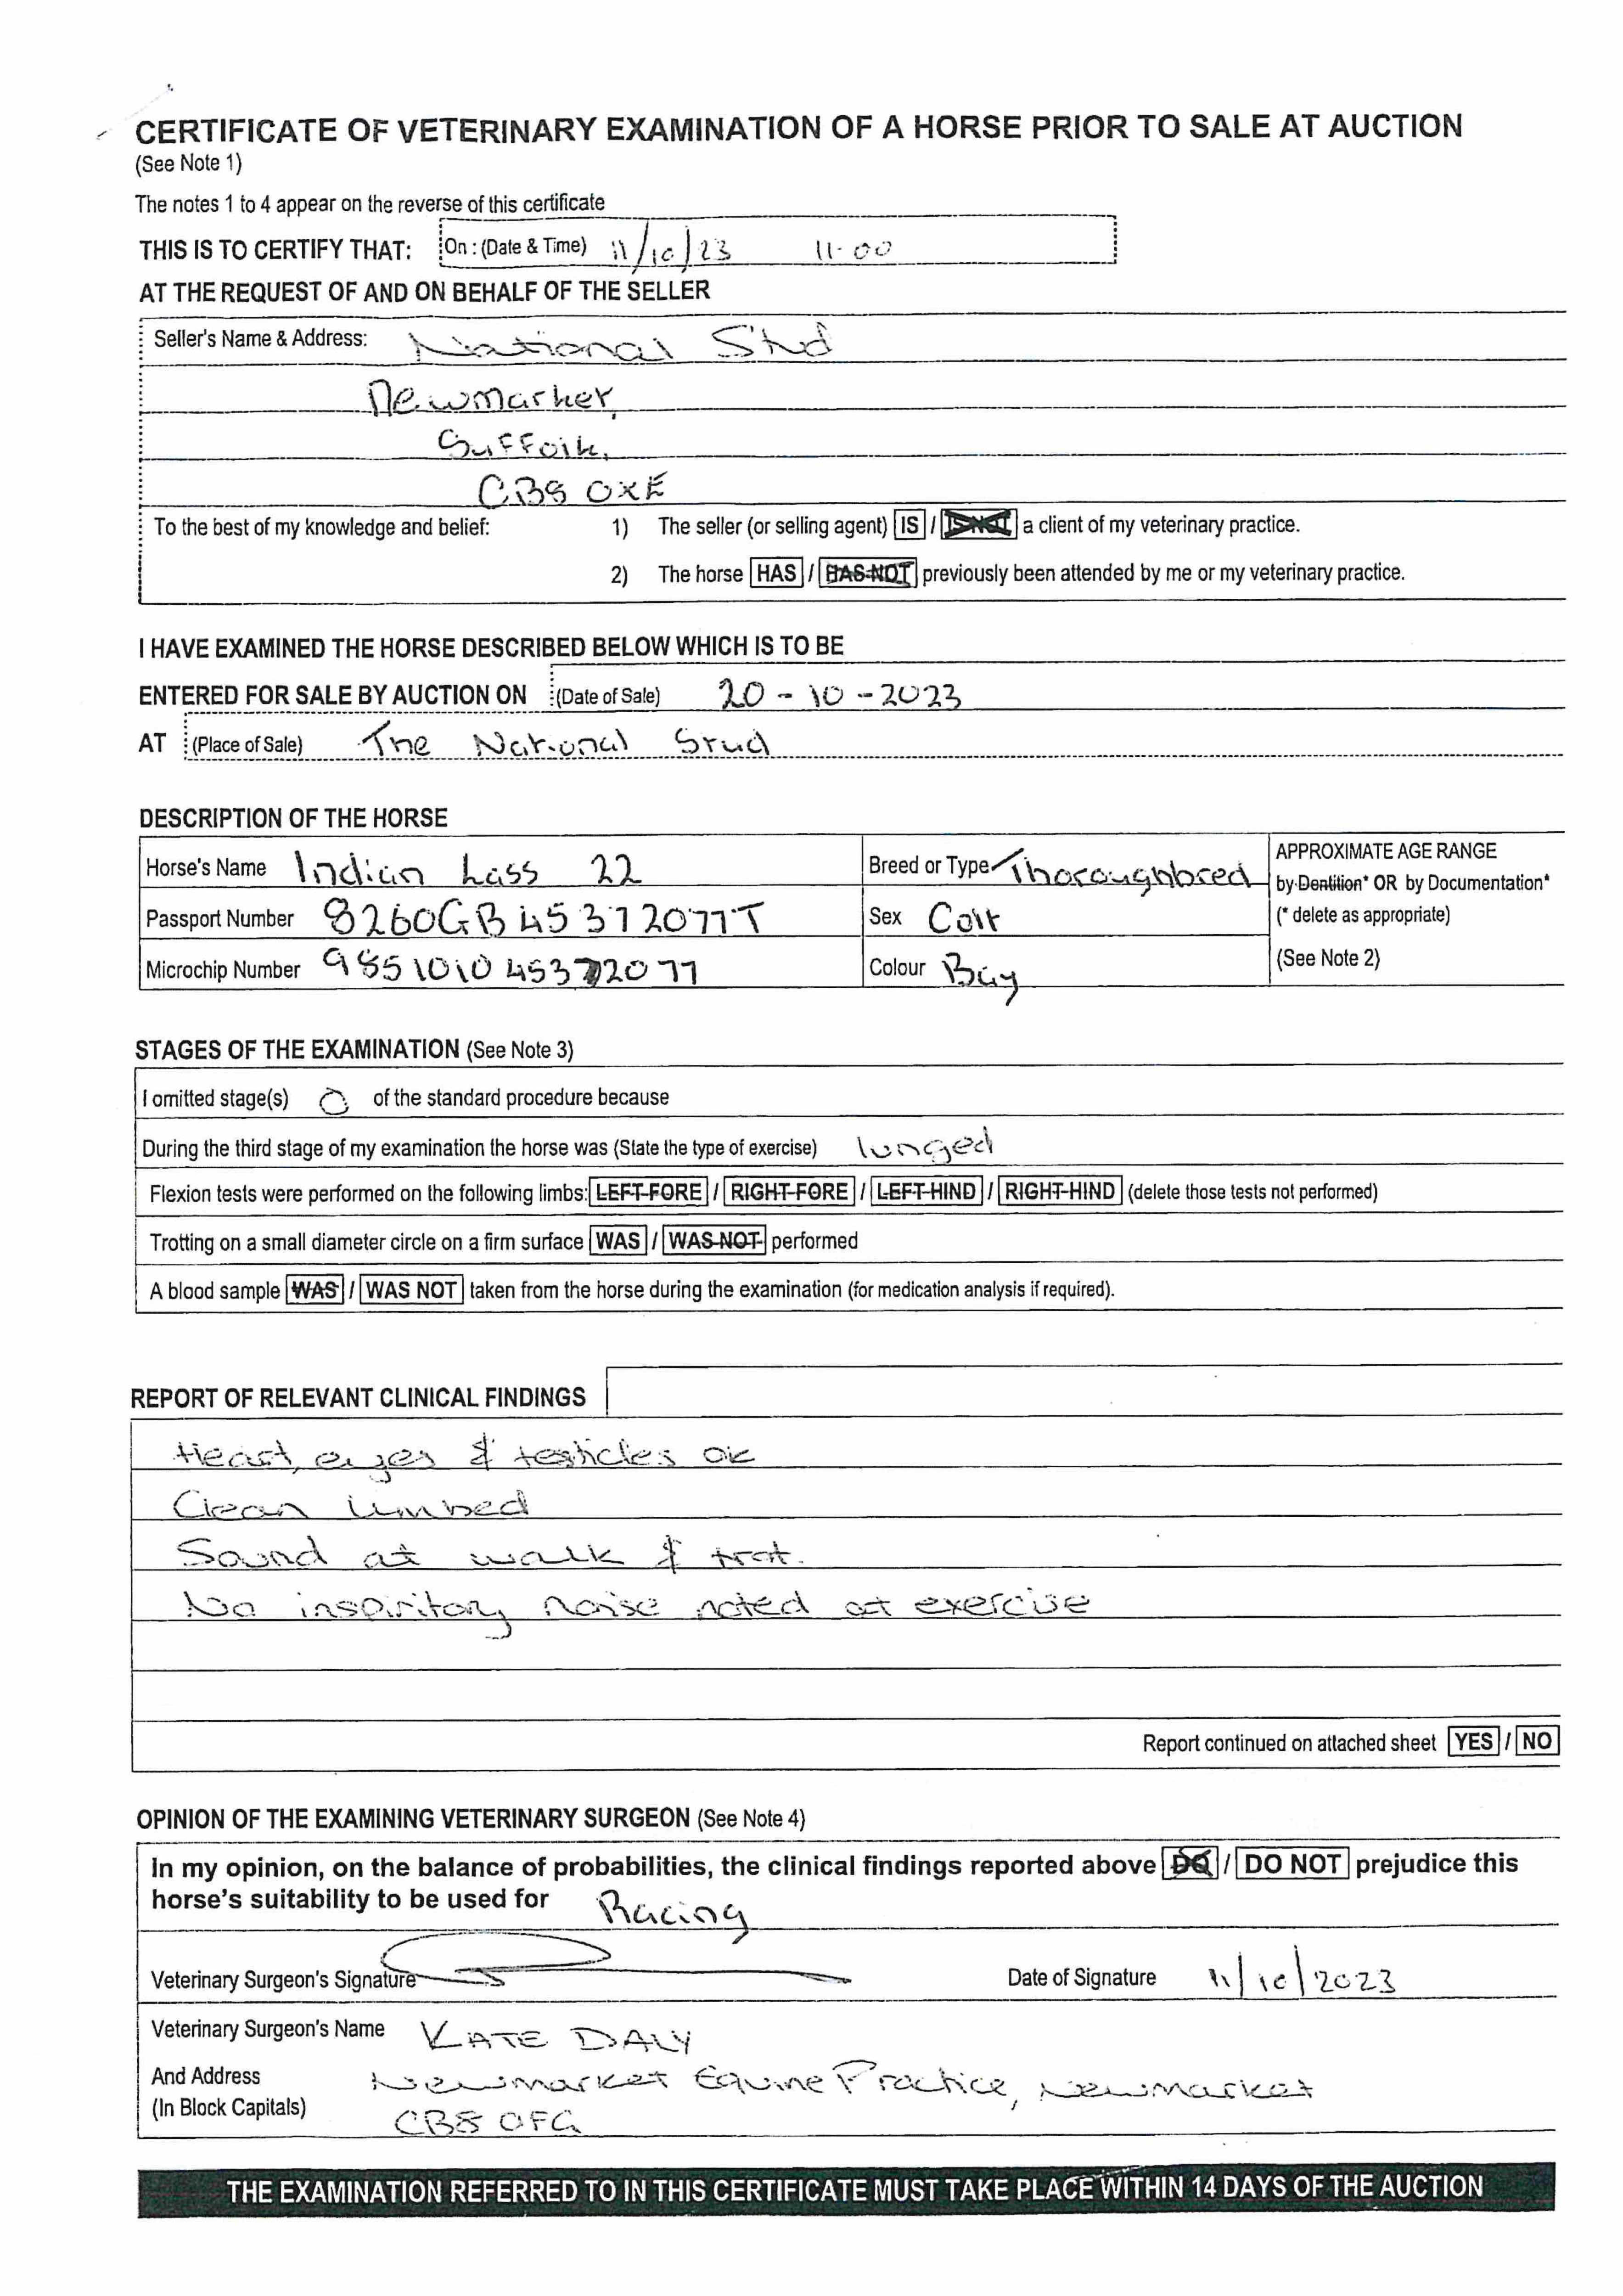 CERTIFICATE OF VETERINARY EXAMINATION OF A HORSE PRIOR TO SALE AT AUCTION
(See Note 1)
The notes 1 to 4 appear on the reverse of this certificate
THIS IS TO CERTIFY THAT: On : (Date & Time) 11/10/23 11-00
AT THE REQUEST OF AND ON BEHALF OF THE SELLER
Seller's Name & Address: National Stud
Newmarket,
Suffolk,
CB8 0XE
To the best of my knowledge and belief: 1) The seller (or selling agent) IS / IS NOT a client of my veterinary practice.
2) The horse HAS / HAS NOT previously been attended by me or my veterinary practice.
I HAVE EXAMINED THE HORSE DESCRIBED BELOW WHICH IS TO BE
ENTERED FOR SALE BY AUCTION ON (Date of Sale) 20-10-2023
AT (Place of Sale) The National Stud
DESCRIPTION OF THE HORSE
Horse's Name Indian Lass 22 Breed or Type Thoroughbred APPROXIMATE AGE RANGE
by Dentition* OR by Documentation*
Passport Number 8260GB45372077T Sex Colt (* delete as appropriate)
Microchip Number 985101045372077 Colour Bay (See Note 2)
STAGES OF THE EXAMINATION (See Note 3)
I omitted stage(s) 0 of the standard procedure because
During the third stage of my examination the horse was (State the type of exercise) lunged
Flexion tests were performed on the following limbs: LEFT FORE / RIGHT FORE / LEFT HIND / RIGHT HIND (delete those tests not performed)
Trotting on a small diameter circle on a firm surface WAS / WAS NOT performed
A blood sample WAS / WAS NOT taken from the horse during the examination (for medication analysis if required).
REPORT OF RELEVANT CLINICAL FINDINGS
Heart, eyes & testicles ok
Clean limbed
Sound at walk & trot.
No inspiritory noise noted at exercise
Report continued on attached sheet YES / NO
OPINION OF THE EXAMINING VETERINARY SURGEON (See Note 4)
In my opinion, on the balance of probabilities, the clinical findings reported above DO / DO NOT prejudice this
horse's suitability to be used for Racing
Veterinary Surgeon's Signature Date of Signature 11/10/2023
Veterinary Surgeon's Name KATE DALY
And Address Newmarket Equine Practice, Newmarket
(In Block Capitals) CB8 0FG
THE EXAMINATION REFERRED TO IN THIS CERTIFICATE MUST TAKE PLACE WITHIN 14 DAYS OF THE AUCTION